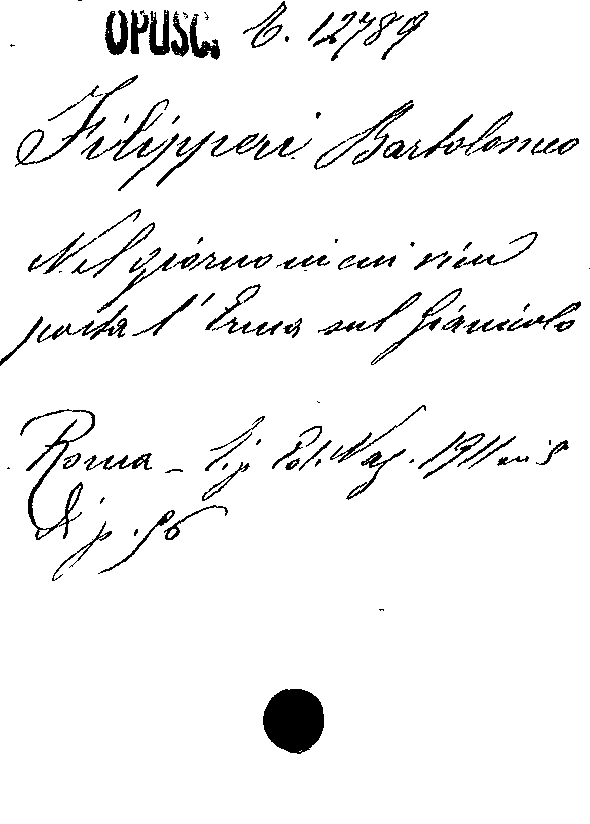 OPUSC. C. 12789
Filipperi Bartolomeo
Nel giorno in cui vien
posta l'Erma sul Gianicolo
Roma - Tip. Edi. Naz. 1911 in 8
di p. 56